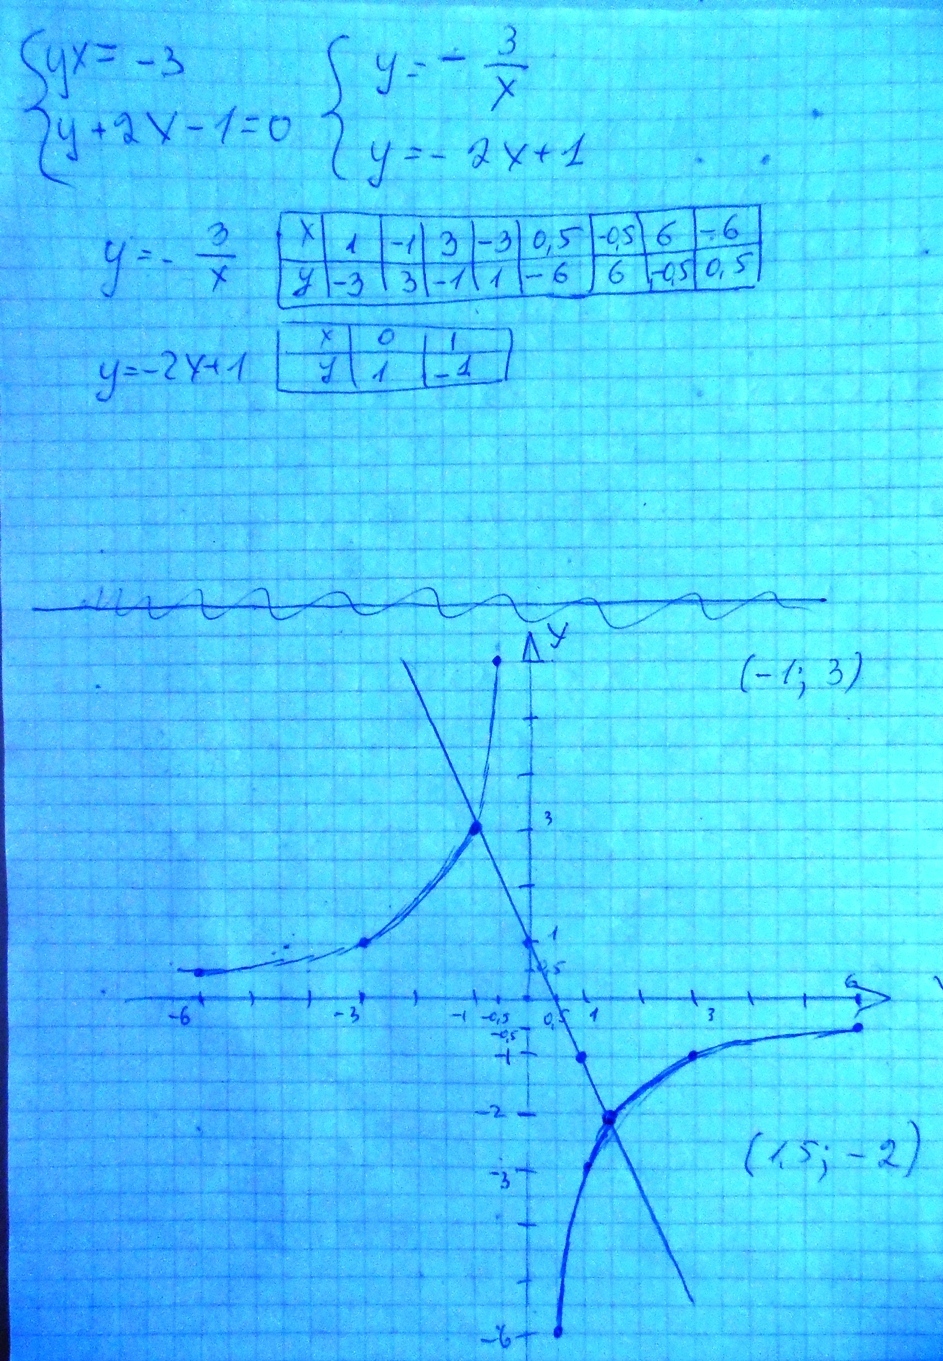 { yx = -3
{ y + 2x - 1 = 0
{ y = - 3/x
{ y = - 2x + 1
y = - 3/x
x 1 -1 3 -3 0,5 -0,5 6 -6
y -3 3 -1 1 -6 6 -0,5 0,5
y = -2x + 1
x 0 1
y 1 -1
y
(-1; 3)
3
1
0,5
6
-6 -3 -1 -0,5 0,5 1 3
-0,5
-1
-2
(1,5; -2)
-3
-6